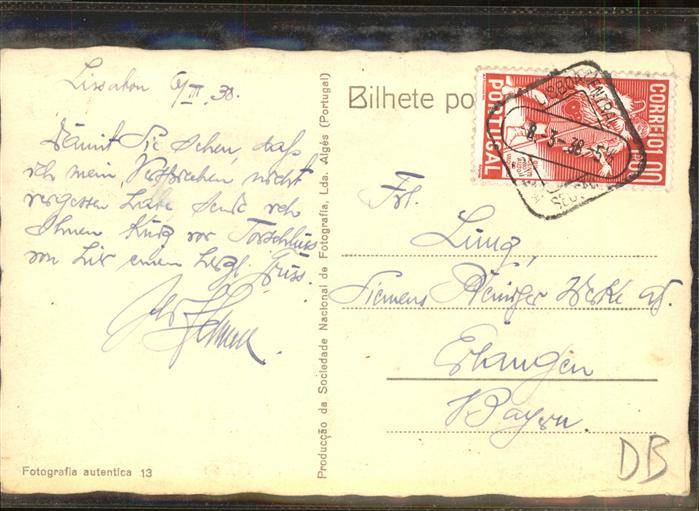 Lissabon 6/III. 38.
Damit Sie sehen, daß
ich mein Versprechen nicht
vergessen habe sende ich
Ihnen kurz vor Torschluss
von hier einen herzl. Gruss.
Producção da Sociedade Nacional de Fotografia, Lda. Algés (Portugal)
Fotografia autentica 13
Bilhete po
CORREIO 1,00
PORTUGAL
LISBOA CENTRAL
8-3-38-5
Frl.
Lung,
Siemens Reiniger Werke AG.
Erlangen
Bayern.
DB